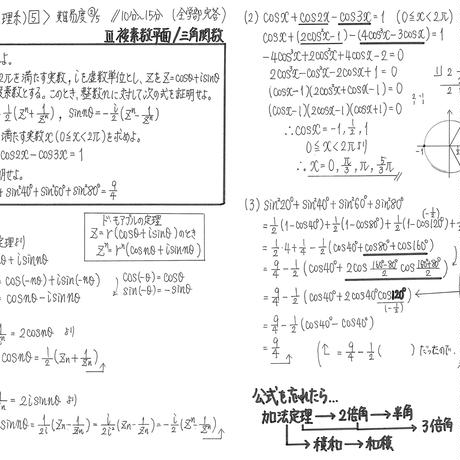 理系) 5 > 難易度 B/5 // 10分~15分 (全学部・完答)
III 複素数平面/三角関数
よ。
2πを満たす実数, iを虚数単位とし, Zを Z=cosθ+isinθ
複素数とする。このとき, 整数nに対して次の式を証明せよ。
1/2(Zⁿ+1/Zⁿ), sin nθ=-i/2(Zⁿ-1/Zⁿ)
満たす実数x(0≦x<2π)を求めよ。
cos2x-cos3x=1
明せよ。
+sin²40°+sin²60°+sin²80°=9/4
ド・モアブルの定理
Z=r(cosθ+isinθ)のとき
Zⁿ=rⁿ(cosnθ+isinnθ)
θ+isinnθ
=cos(-nθ)+isin(-nθ)
=cosnθ-isinnθ
cos(-θ)=cosθ
sin(-θ)=-sinθ
1/Zⁿ=2cosnθ より
cosnθ=1/2(Zⁿ+1/Zⁿ)
1/Zⁿ=2isinnθ より
sinnθ=1/2i(Zⁿ-1/Zⁿ)=i/2i²(Zⁿ-1/Zⁿ)=-i/2(Zⁿ-1/Zⁿ)
(2) cosx+cos2x-cos3x=1 (0≦x<2π)
cosx+(2cos²x-1)-(4cos³x-3cosx)=1
-4cos³x+2cos²x+4cosx-2=0
2cos³x-cos²x-2cosx+1=0
(cosx-1)(2cos²x+cosx-1)=0
(cosx-1)(2cosx-1)(cosx+1)=0
∴cosx=-1, 1/2, 1
0≦x<2πより
∴x=0, π/3, π, 5/3π
-1
(3) sin²20°+sin²40°+sin²60°+sin²80°
=1/2(1-cos40°)+1/2(1-cos80°)+1/2(1-cos120°)+
(-1/2)
=1/2・4+1/4-1/2(cos40°+cos80°+cos160°)
=9/4-1/2(cos40°+2cos (160°-80°)/2 cos (160°+80°)/2)
=9/4-1/2(cos40°+2cos40°cos120°)
(-1/2)
=9/4-1/2(cos40°-cos40°)
=9/4
(↑=9/4-1/2( )だったので.
公式を忘れたら…
加法定理→2倍角→半角
3倍角
→積和→和積